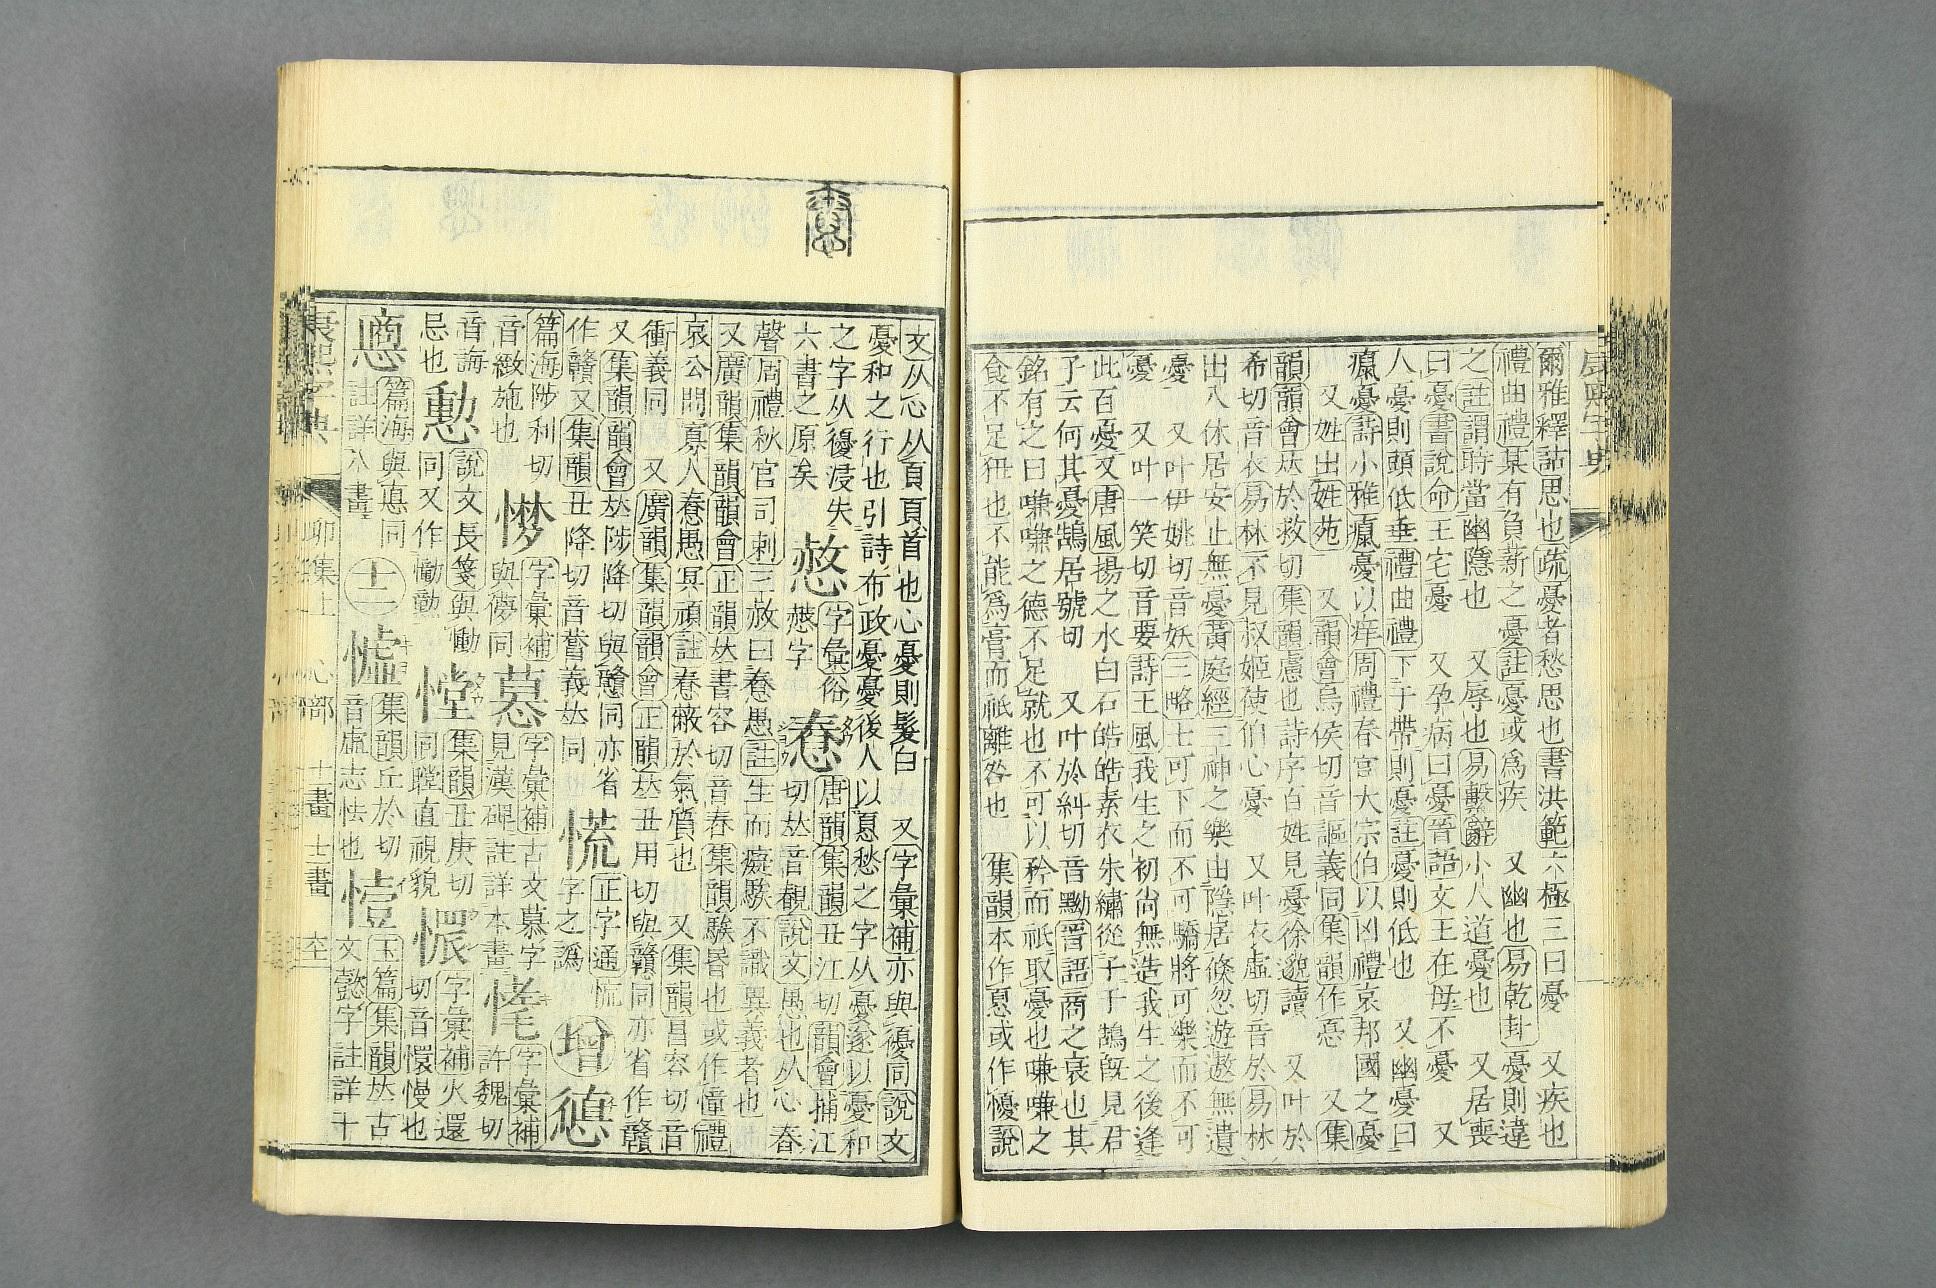 爾雅釋詁思也疏憂者愁思也書洪範六極三曰憂　又疾也
禮曲禮某有負薪之憂註憂或爲疾　又幽也易乾卦憂則違
之註謂時當幽隱也　又辱也易繫辭小人道憂也　又居喪
曰憂書說命王宅憂　又孕病曰憂晉語文王在母不憂　又
人憂則頭低垂禮曲禮下于帶則憂註憂則低也　又幽憂曰
癙憂詩小雅癙憂以痒周禮春官大宗伯以凶禮哀邦國之憂
又姓出姓苑　又韻會烏侯切音謳義同集韻作恴　又集
韻韻會𠀤於救切集韻慮也詩序百姓見憂徐邈讀　又叶於
希切音衣易林不見叔姬使伯心憂　又叶衣虛切音於易林
出入休居安止無憂黃庭經三神之樂由隱居倏忽遊遨無遺
憂　又叶伊姚切音妖三略士可下而不可驕將可樂而不可
憂　又叶一笑切音要詩王風我生之初尚無造我生之後逢
此百憂又唐風揚之水白石皓皓素衣朱繡從子于鵠旣見君
子云何其憂鵠居號切　又叶於糾切音黝晉語商之衰也其
銘有之曰嗛嗛之德不足就也不可以矜而祇取憂也嗛嗛之
食不足狃也不能爲膏而祇離咎也　集韻本作㥑或作懮說
文从心从頁頁首也心憂則髮白　又字彙補亦與優同說文
憂和之行也引詩布政憂憂後人以㥑愁之字从憂遂以憂和
之字从優浸失
六書之原矣
憋
字彙俗
憗字
惷
唐韻集韻丑江切韻會摏江
切𠀤音䚎說文愚也从心春
聲周禮秋官司刺三赦曰惷愚註生而癡騃不識異義者也
又廣韻集韻韻會正韻𠀤書容切音舂集韻騃昬也或作憃禮
哀公問寡人惷愚冥頑註惷蔽於氣質也　又集韻昌容切音
衝義同　又廣韻集韻韻會正韻𠀤丑用切與贛同亦省作贛
又集韻韻會𠀤陟降切與戇同亦省
作贛又集韻丑降切音䚎義𠀤同
慌
正字通慌
字之譌
增
㥁
篇海陟利切
音緻施也
㦟
字彙補
與儚同
慕
字彙補古文慕字
見漢碑註詳本畫
恾
字彙補
許魏切
音誨
忌也
慟
說文長箋與慟
同又作慟動
憆
集韻丑庚切
同瞠直視貌
㥹
字彙補火還
切音懁慢也
㥁
篇海與悳同
註詳八畫
十一
𢠷
集韻丘於切
音虛志怯也
憄
玉篇集韻𠀤古
文懿字註詳十
康熙字典
卯集上
心部
十畫
十一畫
康熙字典